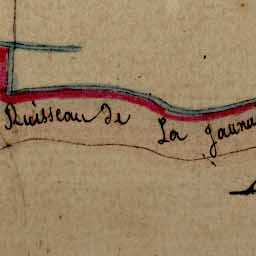 Ruisseau de La Jauna